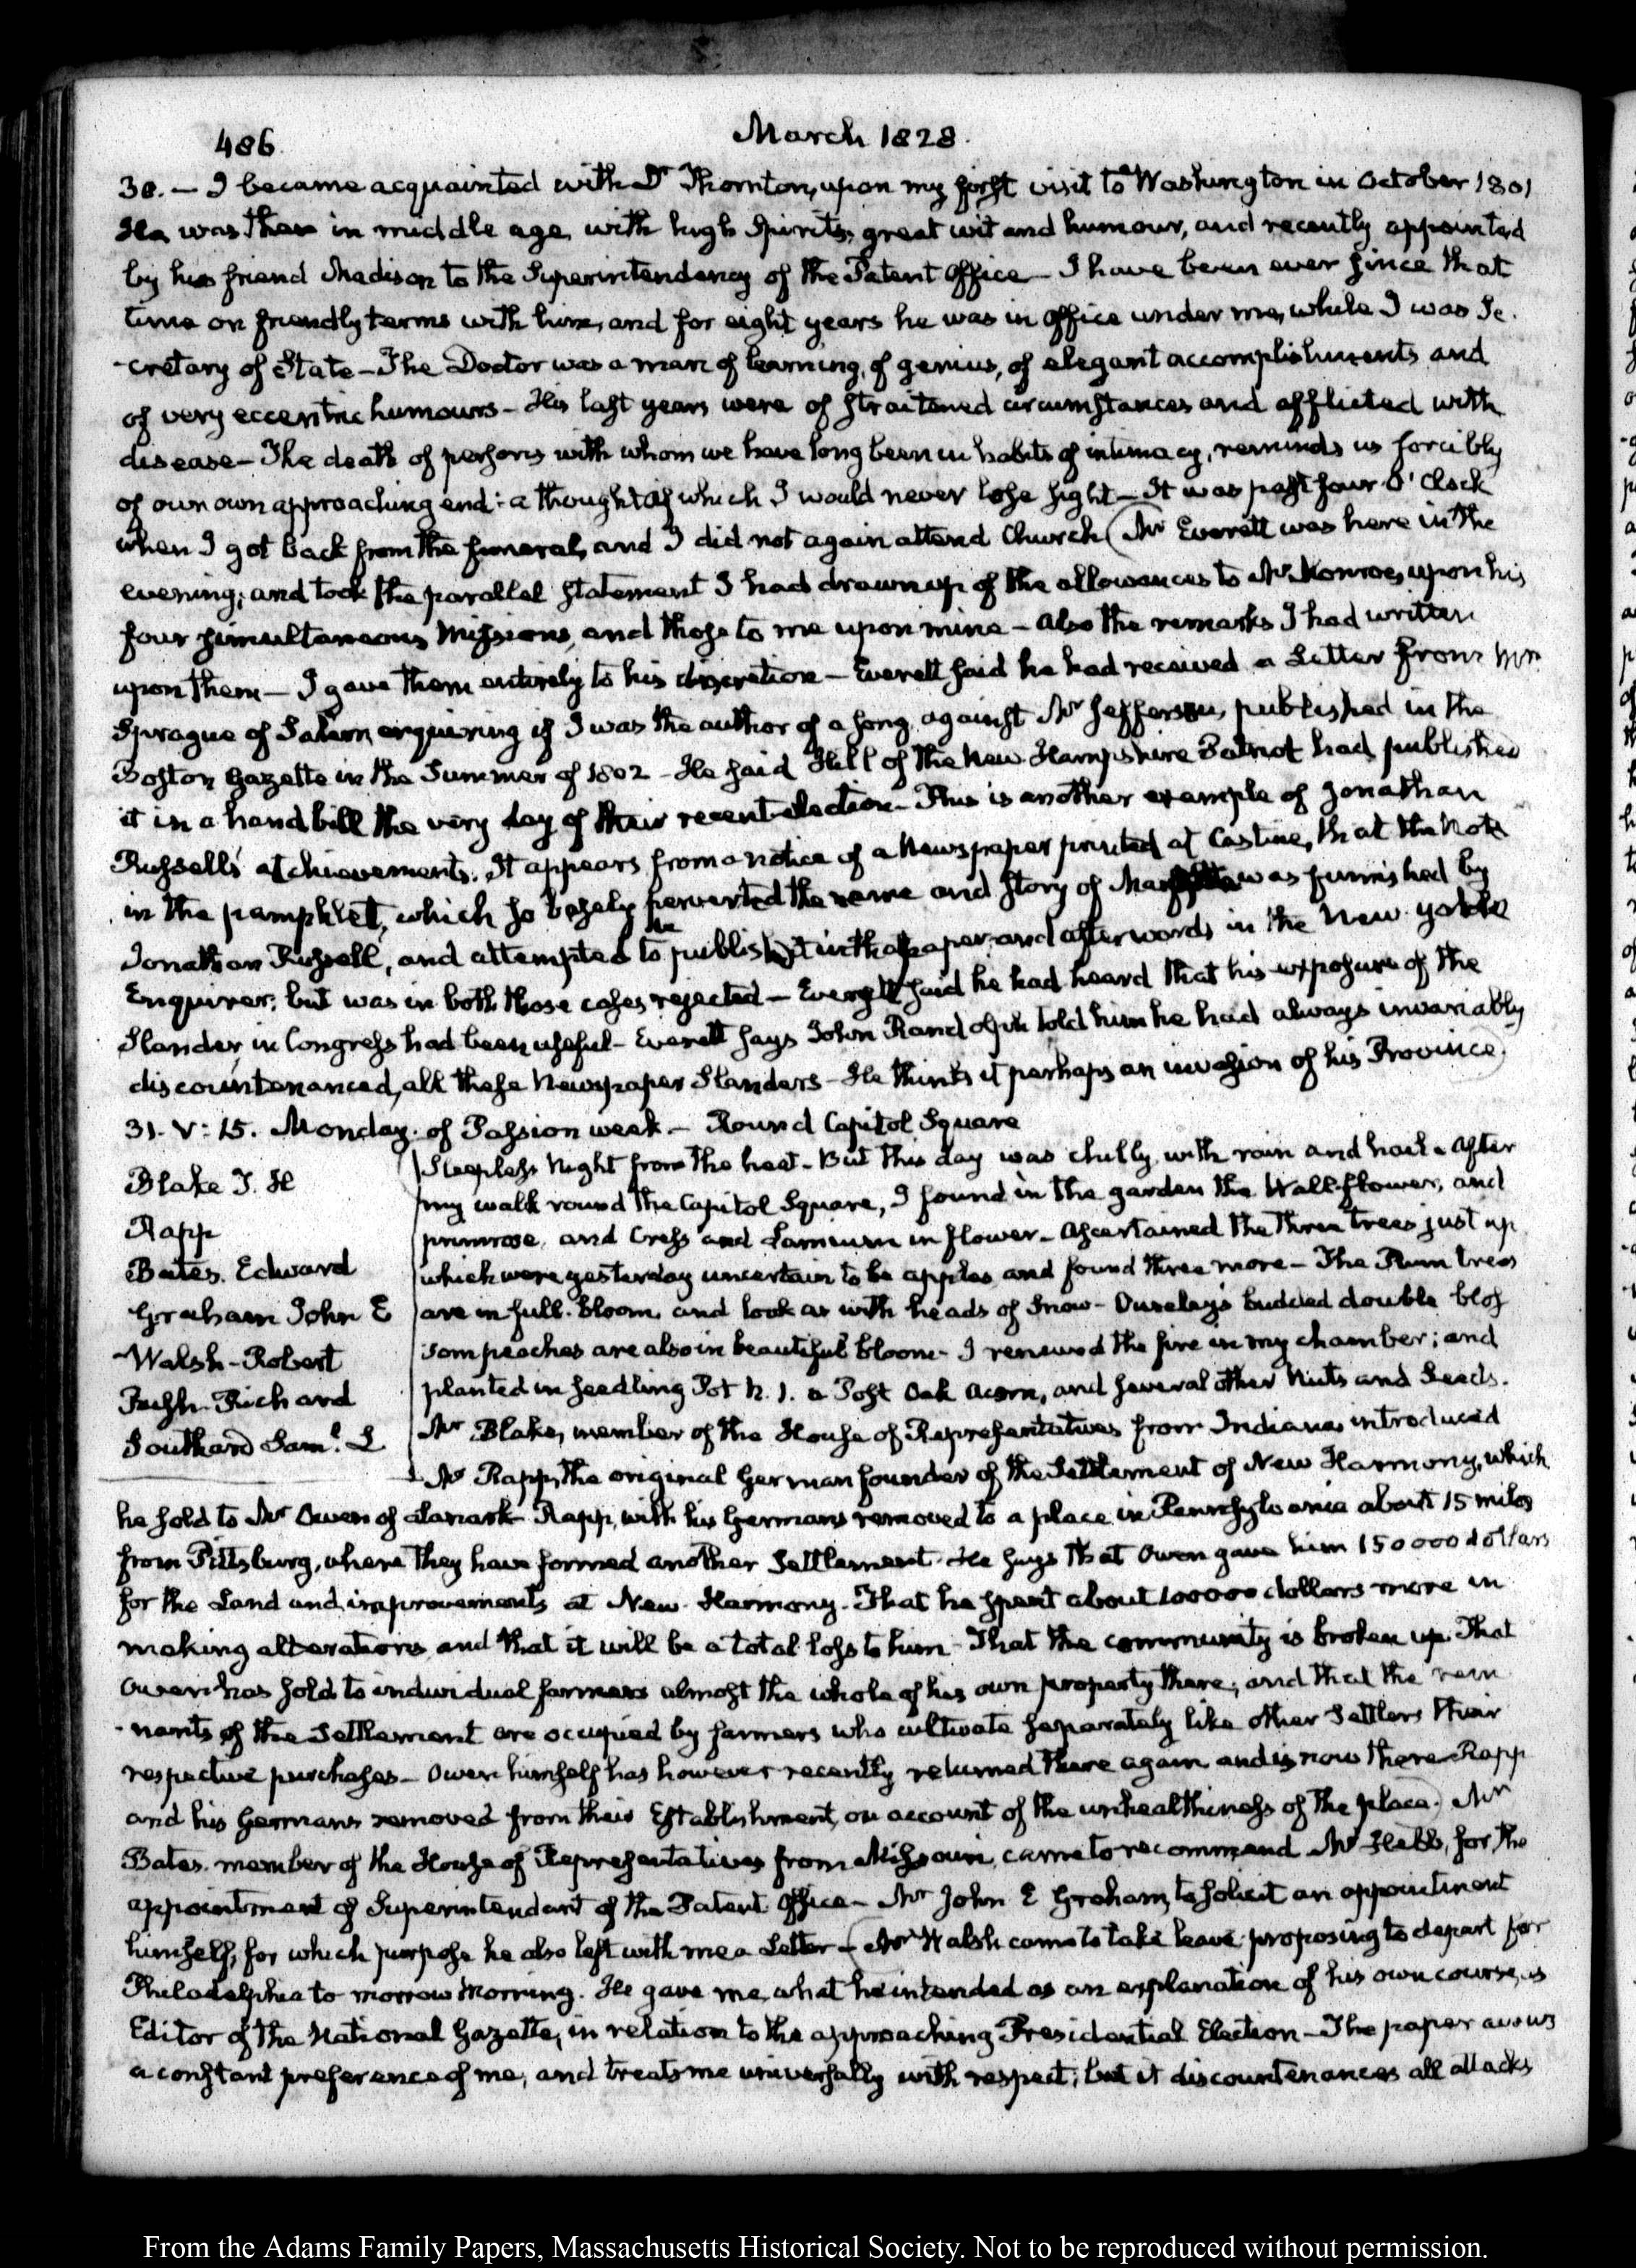 486.
March 1828.
30. — I became acquainted with Dr Thornton, upon my first visit to Washington in October 1801
He was then in middle age, with high Spirits, great wit and humour, and recently appointed
by his friend Madison to the Superintendency of the Patent Office — I have been ever since that
time on friendly terms with him, and for eight years he was in Office under me, while I was Se-
-cretary of State — The Doctor was a man of learning, of genius, of elegant accomplishments and
of very eccentric humours — His last years were of straitened circumstances and afflicted with
disease — The death of persons with whom we have long been in habits of intimacy, reminds us forcibly
of our own approaching end: a thought of which I would never lose sight — It was past four O'Clock
when I got back from the funeral, and I did not again attend Church (Mr Everett was here in the
evening; and took the parallel statement I had drawn up of the allowances to Mr Monroe, upon his
four simultaneous Missions, and those to me upon mine — Also the remarks I had written
upon them — I gave them entirely to his discretion — Everett said he had received a Letter from Mr
Sprague of Salem, enquiring if I was the author of a song against Mr Jefferson, published in the
Boston Gazette in the Summer of 1802 — He said Hill of the New Hampshire Patriot had published
it in a hand bill the very day of their recent election — This is another example of Jonathan
Russell's atchievements. It appears from a notice of a Newspaper printed at Castine, that the Note
in the pamphlet, which so basely perverted the name and story of was furnished by
Jonathan Russell, and attempted to be published in that paper, and afterwards in the New York
Enquirer; but was in both those cases rejected — Everett said he had heard that his exposure of the
Slander, in Congress had been useful — Everett says John Randolph told him he had always invariably
discountenanced, all these Newspaper Slanders — He thinks it perhaps an invasion of his Province.
31. V: 15. Monday. of Passion week — Round Capitol Square
Blake T. H
Rapp
Bates. Edward
Graham John E
Walsh - Robert
Rush - Richard
Southard Saml. L
Sleepless Night from the heat — But this day was chilly, with rain and hail. After
my walk round the Capitol Square, I found in the garden the Wall-flower, and
primrose, and Cress and Lamium in flower — Ascertained the three trees just up
which were yesterday uncertain to be apples and found three more — The Plum trees
are in full Bloom, and look as with heads of Snow — Ouseley's budded double blos
som peaches are also in beautiful bloom — I renewed the fire in my chamber; and
planted in seedling Pot N. 1. a Post Oak Acorn, and several other Nuts and Seeds.
Mr Blake, member of the House of Representatives from Indiana, introduced
Mr Rapp, the original German founder of the Settlement of New Harmony, which
he sold to Mr Owen of Lanark — Rapp, with his Germans removed to a place in Pennsylvania about 15 miles
from Pittsburg, where they have formed another Settlement. He says that Owen gave him 150000 dollars
for the Land and improvements at New Harmony. That he spent about 100000 dollars more in
making alterations and that it will be a total loss to him — That the community is broken up. That
Owen has sold to individual farmers almost the whole of his own property there, and that the rem
-nants of the Settlement are occupied by farmers who cultivate separately like other Settlers their
respective purchases — Owen himself has however recently returned there again and is now there — Rapp
and his Germans removed from their Establishment, on account of the unhealthiness of the place.) Mr
Bates. member of the House of Representatives from Missouri, came to recommend Mr for the
appointment of Superintendant of the Patent Office — Mr John E Graham, to solicit an appointment
himself, for which purpose he also left with me a Letter — (Mr Walsh came to take leave, proposing to depart for
Philadelphia to morrow Morning. He gave me, what he intended as an explanation of his own course, as
Editor of the National Gazette, in relation to the approaching Presidential Election — The paper avows
a constant preference of me, and treats me universally with respect; but it discountenances all attacks
From the Adams Family Papers, Massachusetts Historical Society. Not to be reproduced without permission.